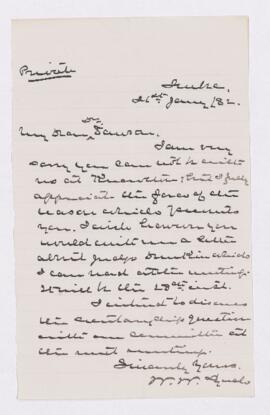 Private
26th Jany /82.
My dear Dr Dawson.
I am very
sorry you can not be with
us at but I fully
appreciate the force of the
reason which prevents
you. I wish however you
would write me a letter
about Judge which
I can read at the meeting.
It will be the 28th inst.
I intend to discuss
the question
with our committee at
the next meeting.
Sincerely Yours.